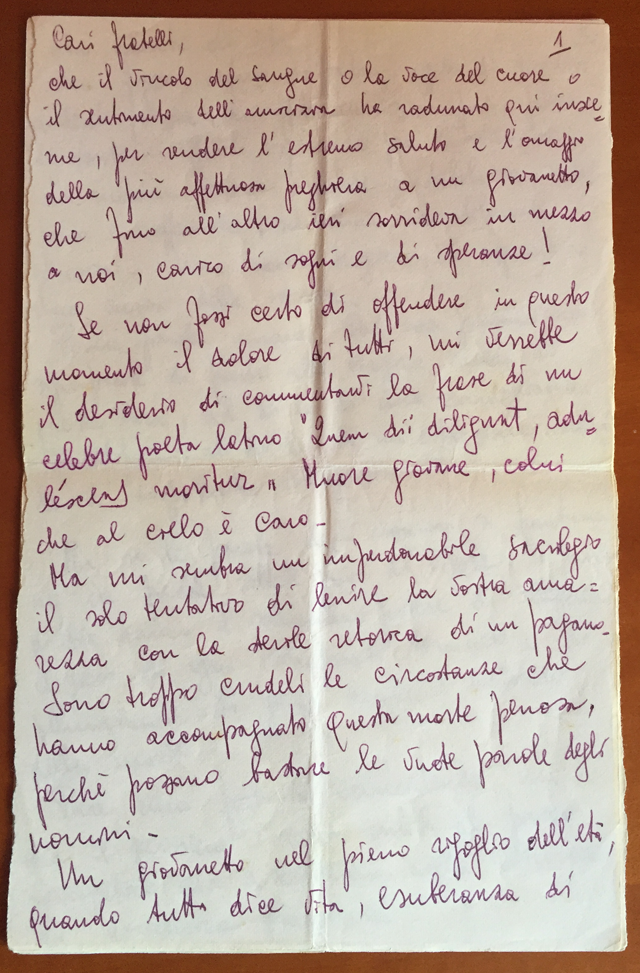 Cari fratelli,
1
che il vincolo del sangue o la voce del cuore o
il sentimento dell'amicizia ha radunato qui insie=
me, per rendere l'estremo saluto e l'omaggio
della più affettuosa preghiera a un giovanetto,
che fino all'altro ieri sorrideva in mezzo
a noi, carico di sogni e di speranze!
Se non fossi certo di offendere in questo
momento il dolore di tutti, mi verrebbe
il desiderio di commentarvi la frase di un
celebre poeta latino "Quem dii diligunt, adu=
léscens moritur" Muore giovane, colui
che al cielo è caro -
Ma mi sembra un imperdonabile sacrilegio
il solo tentativo di lenire la vostra ama=
rezza con la sterile retorica di un pagano -
Sono troppo crudeli le circostanze che
hanno accompagnato questa morte penosa,
perchè possano bastare le vuote parole degli
uomini -
Un giovanetto nel pieno rigoglio dell'età,
quando tutto dice vita, esuberanza di